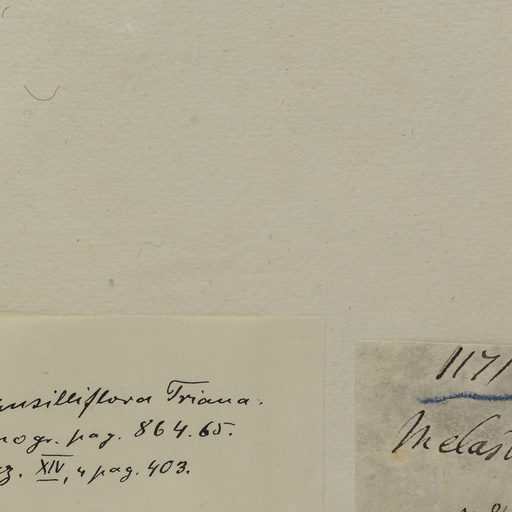 usilliflora Triana.
nogr. pag. 864.65.
XIV, 4 pag. 403.
1171
Melast